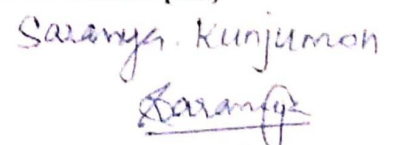 Saranya. Kunjumon
Saranya